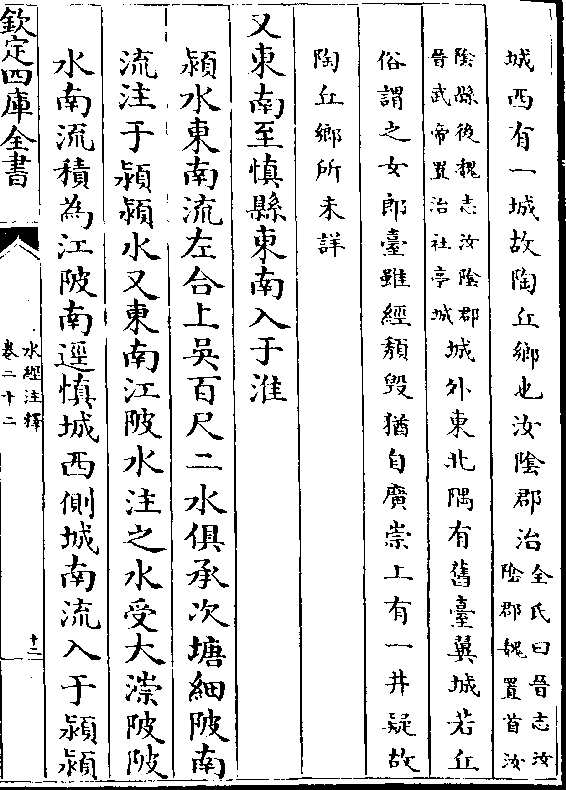 城西有一城故陶丘鄉也汝陰郡治全氏曰晉志汝陰郡魏置首汝
陰縣後魏志汝陰郡晉武帝置治社亭城城外東北隅有舊臺翼城若丘
俗謂之女郎臺雖經頹毀猶自廣崇上有一井疑故
陶丘鄉所未詳
又東南至慎縣東南入于淮
潁水東南流左合上吳百尺二水俱承次塘細陂南
流注于潁潁水又東南江陂水注之水受大漴陂陂
水南流積為江陂南逕慎城西側城南流入于潁潁
欽定四庫全書
水經注釋
卷二十二
十二